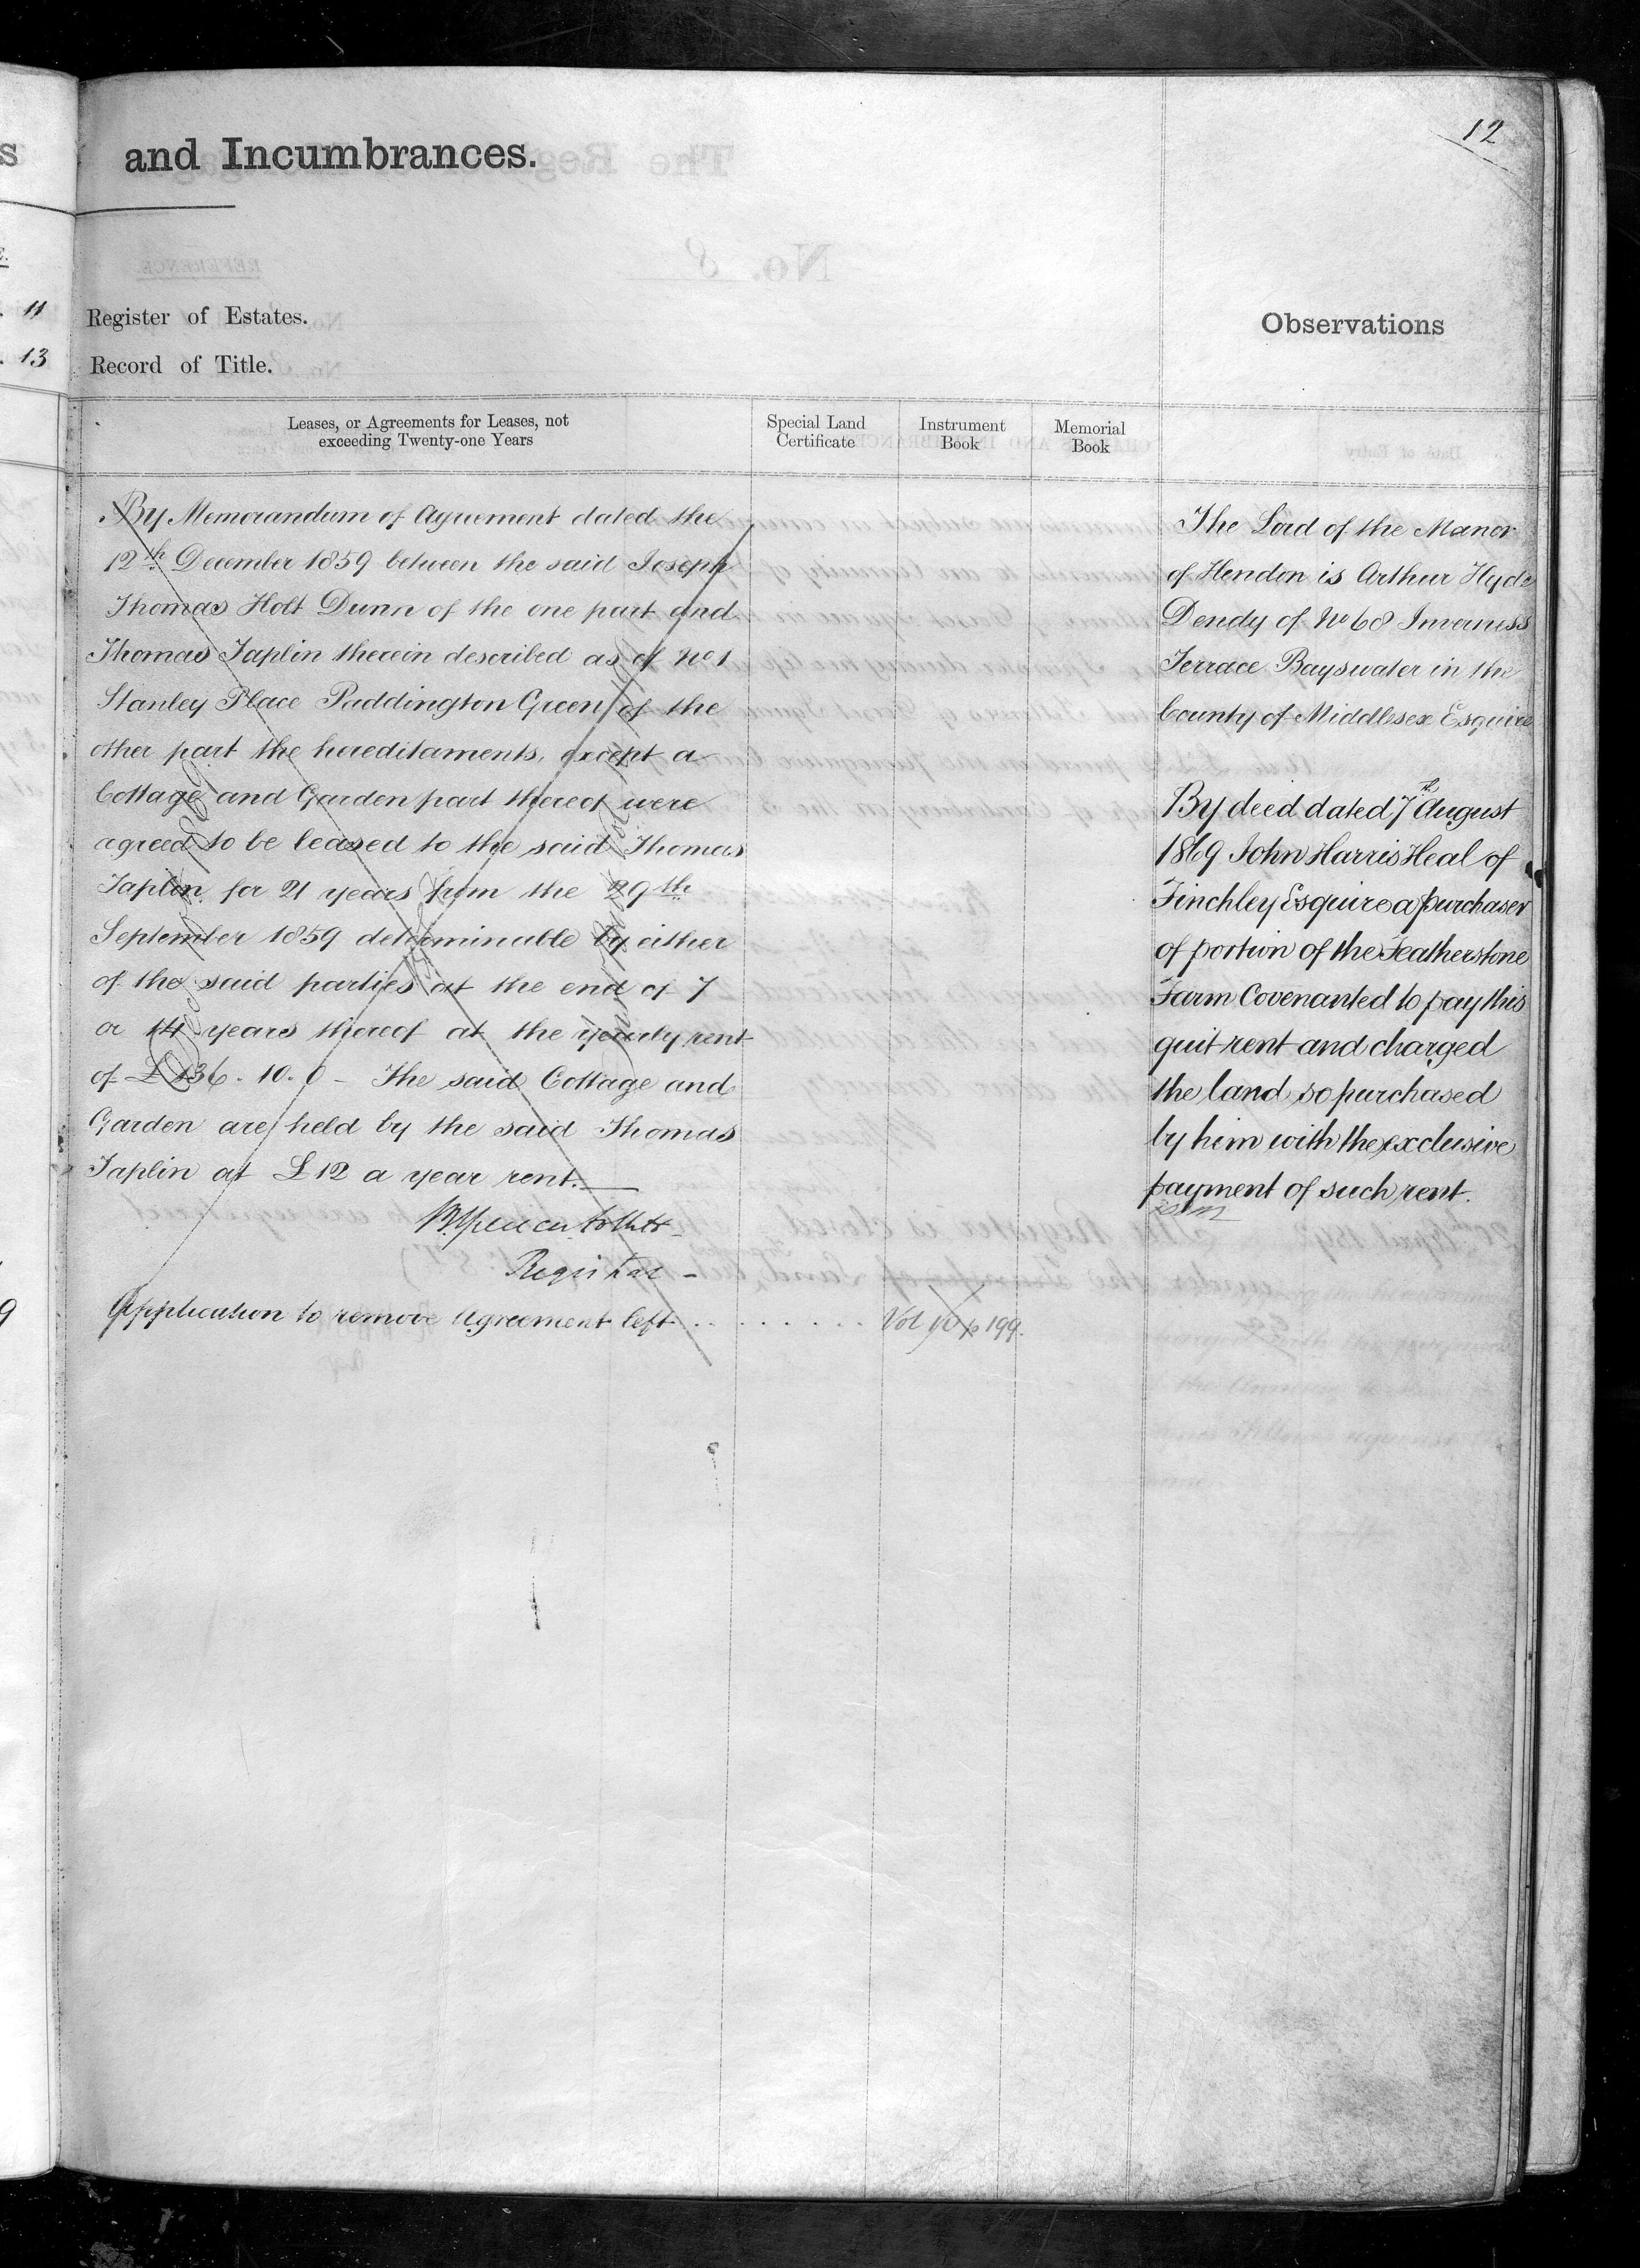 12
and Incumbrances.
11
Register of Estates.
13
Record of Title.
Observations
Leases, or Agreements for Leases, not
exceeding Twenty-one Years
Special Land
Certificate
Instrument
Book
Memorial
Book
By Memorandum of Agreement dated the
12th December 1859 between the said Joseph
Thomas Holt Dunn of the one part and
Thomas Taplin therein described as of No 1
Stanley Place Paddington Green of the
other part the hereditaments, except a
Cottage and Garden part thereof were
agreed to be leased to the said Thomas
Taplin for 21 years from the 29th
September 1859 determinable by either
of the said parties at the end of 7
or 14 years thereof at the yearly rent
of £136. 10. 0 - The said Cottage and
Garden are held by the said Thomas
Taplin at £12 a year rent.
Registrar -
Application to remove Agreement left . . . . . . . . . Vol 10 p 199.
The Lord of the Manor
of Hendon is Arthur Hyde
Dendy of No 68 Inverness
Terrace Bayswater in the
County of Middlesex Esquire
By deed dated 7th August
1869 John Harris Heal of
Finchley Esquire a purchaser
of portion of the Featherstone
Farm Covenanted to pay this
quit rent and charged
the land so purchased
by him with the exclusive
payment of such rent.